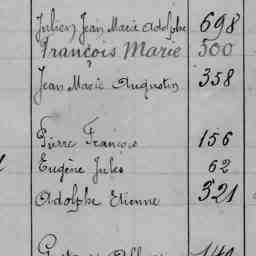 Julien Jean Marie Adolphe 698
François Marie 500
Jean Marie Augustin 358
Pierre François 156
Eugène Jules 62
Adolphe Etienne 321